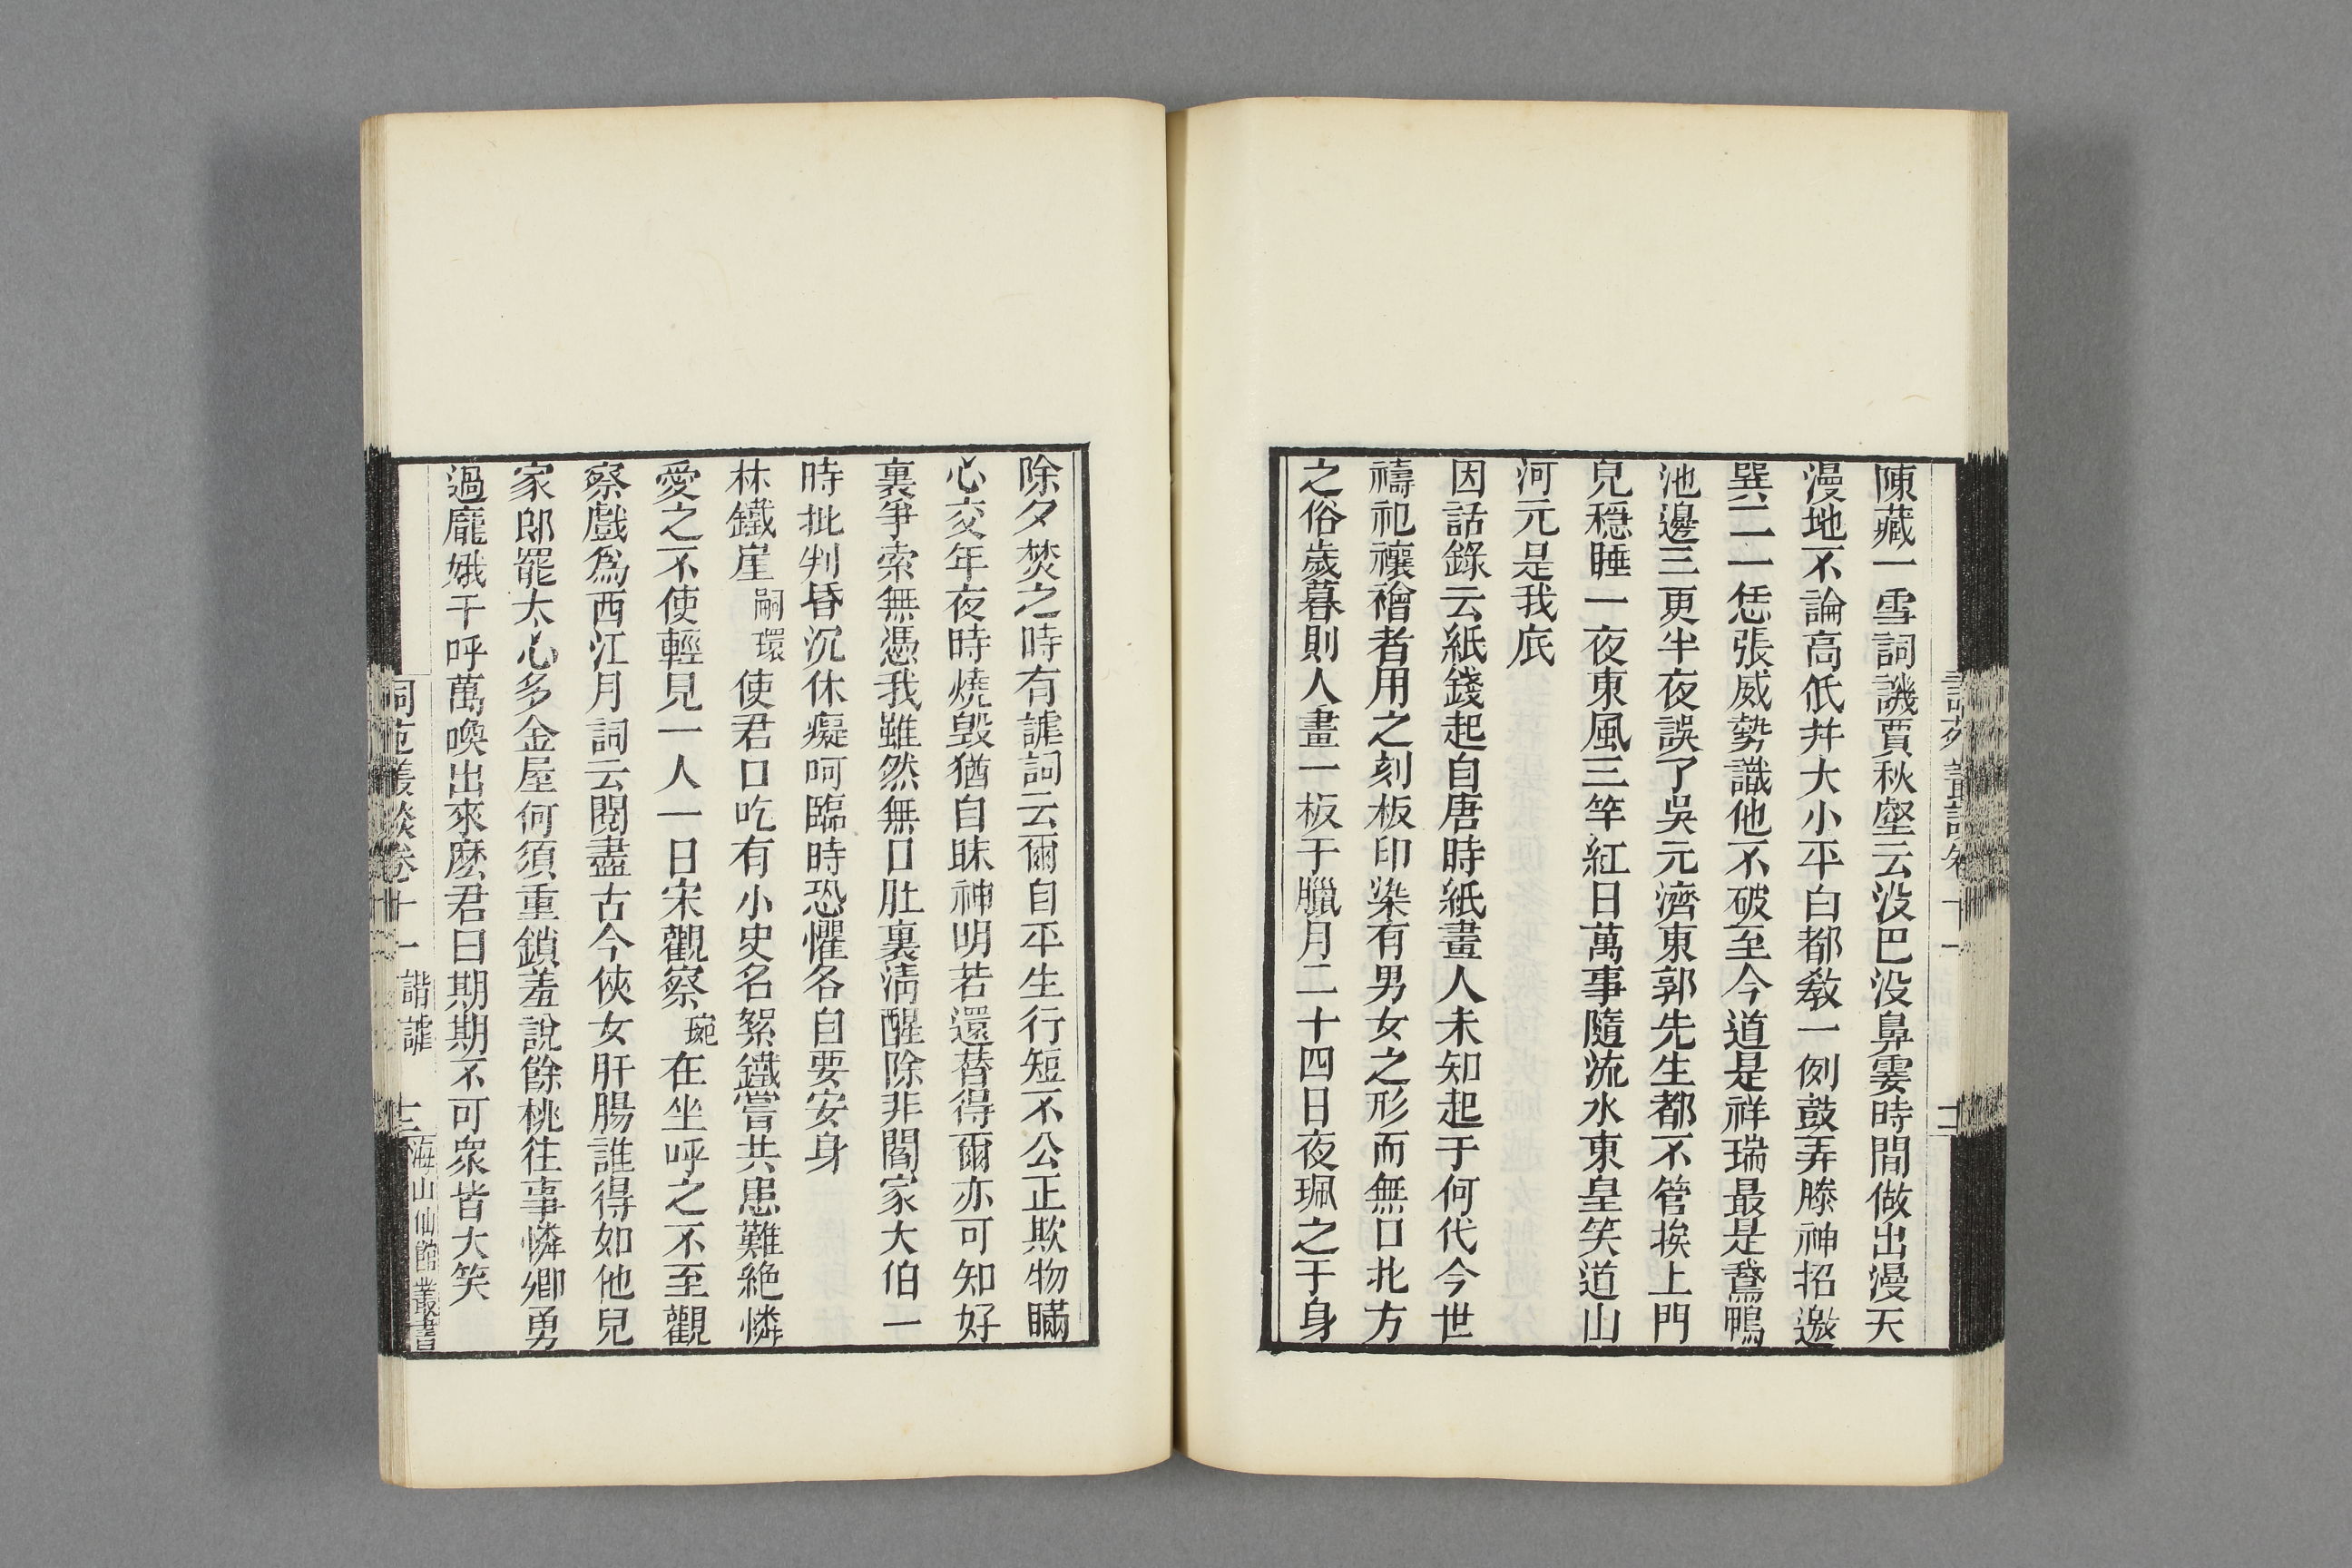 陳藏一雪詞譏賈秋壑云没巴没鼻霎時間做出漫天
漫地不論高低并大小平白都教一例鼓弄滕神招邀
巽二一恁張威勢識他不破至今道是祥瑞最是鵞鴨
池邊三更半夜誤了吳元濟東郭先生都不管挨上門
兒穏睡一夜東風三竿紅日萬事隨流水東皇笑道山
河元是我底
因話錄云紙錢起自唐時紙畫人未知起于何代今世
禱祀禳禬者用之刻板印染有男女之形而無口北方
之俗歲暮則人畫一板于臘月二十四日夜珮之于身
除夕焚之時有謔詞云爾自平生行短不公正欺物瞞
心交年夜時燒毀猶自昧神明若還替得爾亦可知好
裏爭索無憑我雖然無口肚裏淸醒除非閻家大伯一
時批判昏沉休癡呵臨時恐懼各自要安身
林鐵崖嗣環使君口吃有小史名絮鐵嘗共患難絕憐
愛之不使輕見一人一日宋觀察琬在坐呼之不至觀
察戲爲西江月詞云閱盡古今俠女肝腸誰得如他兒
家郎罷太心多金屋何須重鎖羞說餘桃往事憐卿勇
過龐娥千呼萬喚出來麽君曰期期期不可衆皆大笑
詞苑叢談卷十一 諧謔 十三 海山仙館叢書